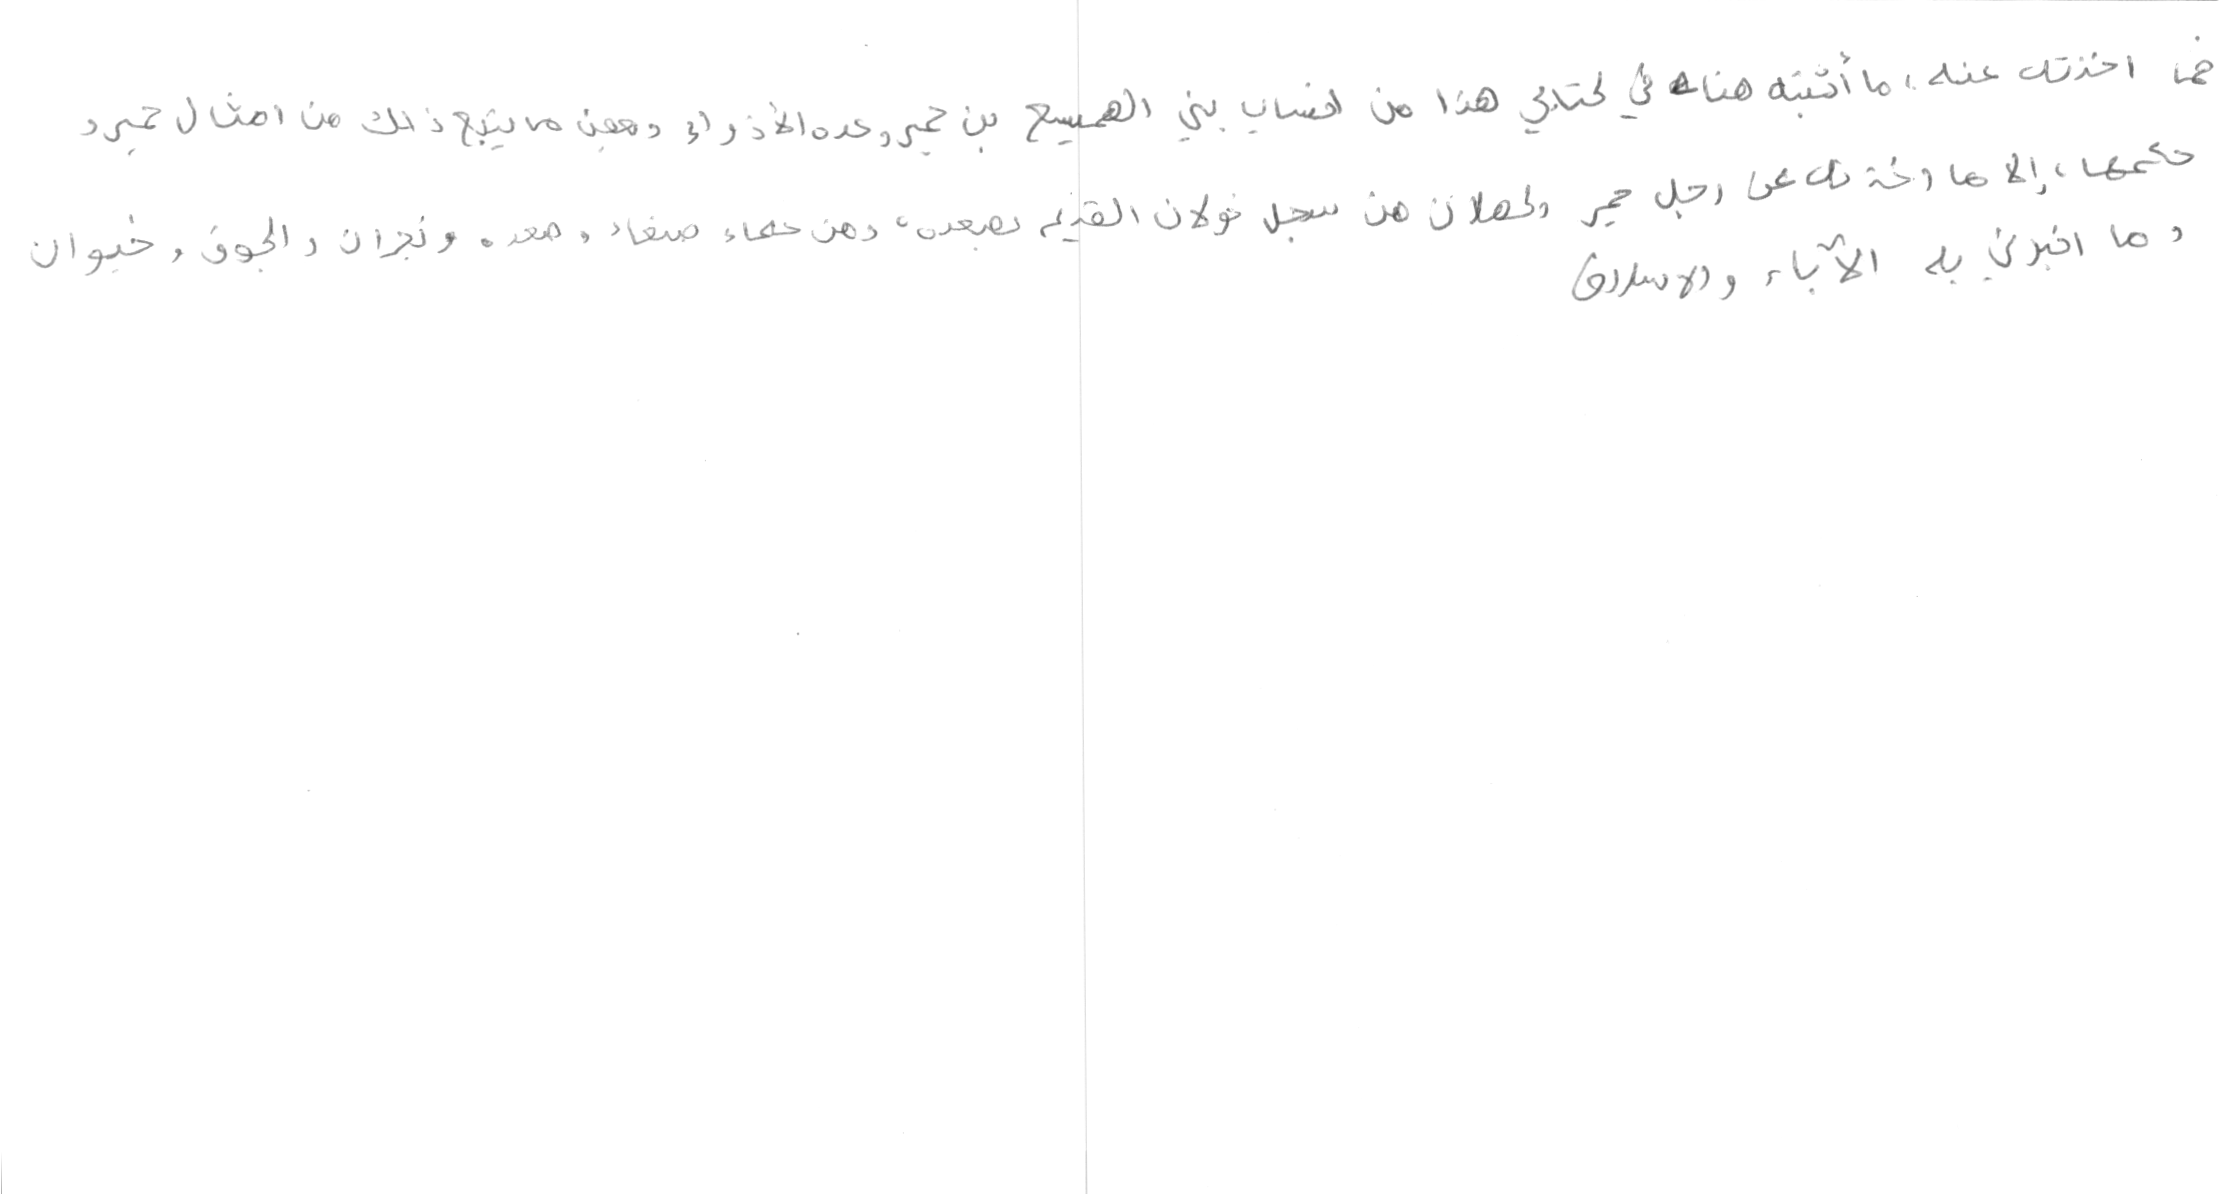 فما اخذته عنه، ما أثبته هناك في كتابي هذا من انساب بني الهميسع بن حمير وعده الأذواء وبعض ما يتبع ذلك من امثال حمير و
حكمها، إلا ما اخذته عن رجل حمير وكهلان من سجل خولان القديم بصعده، ومن علماء صنعاء و صعده و نجران و الجوف و خيوان
و ما اخبرني به الآباء و الاسلاف